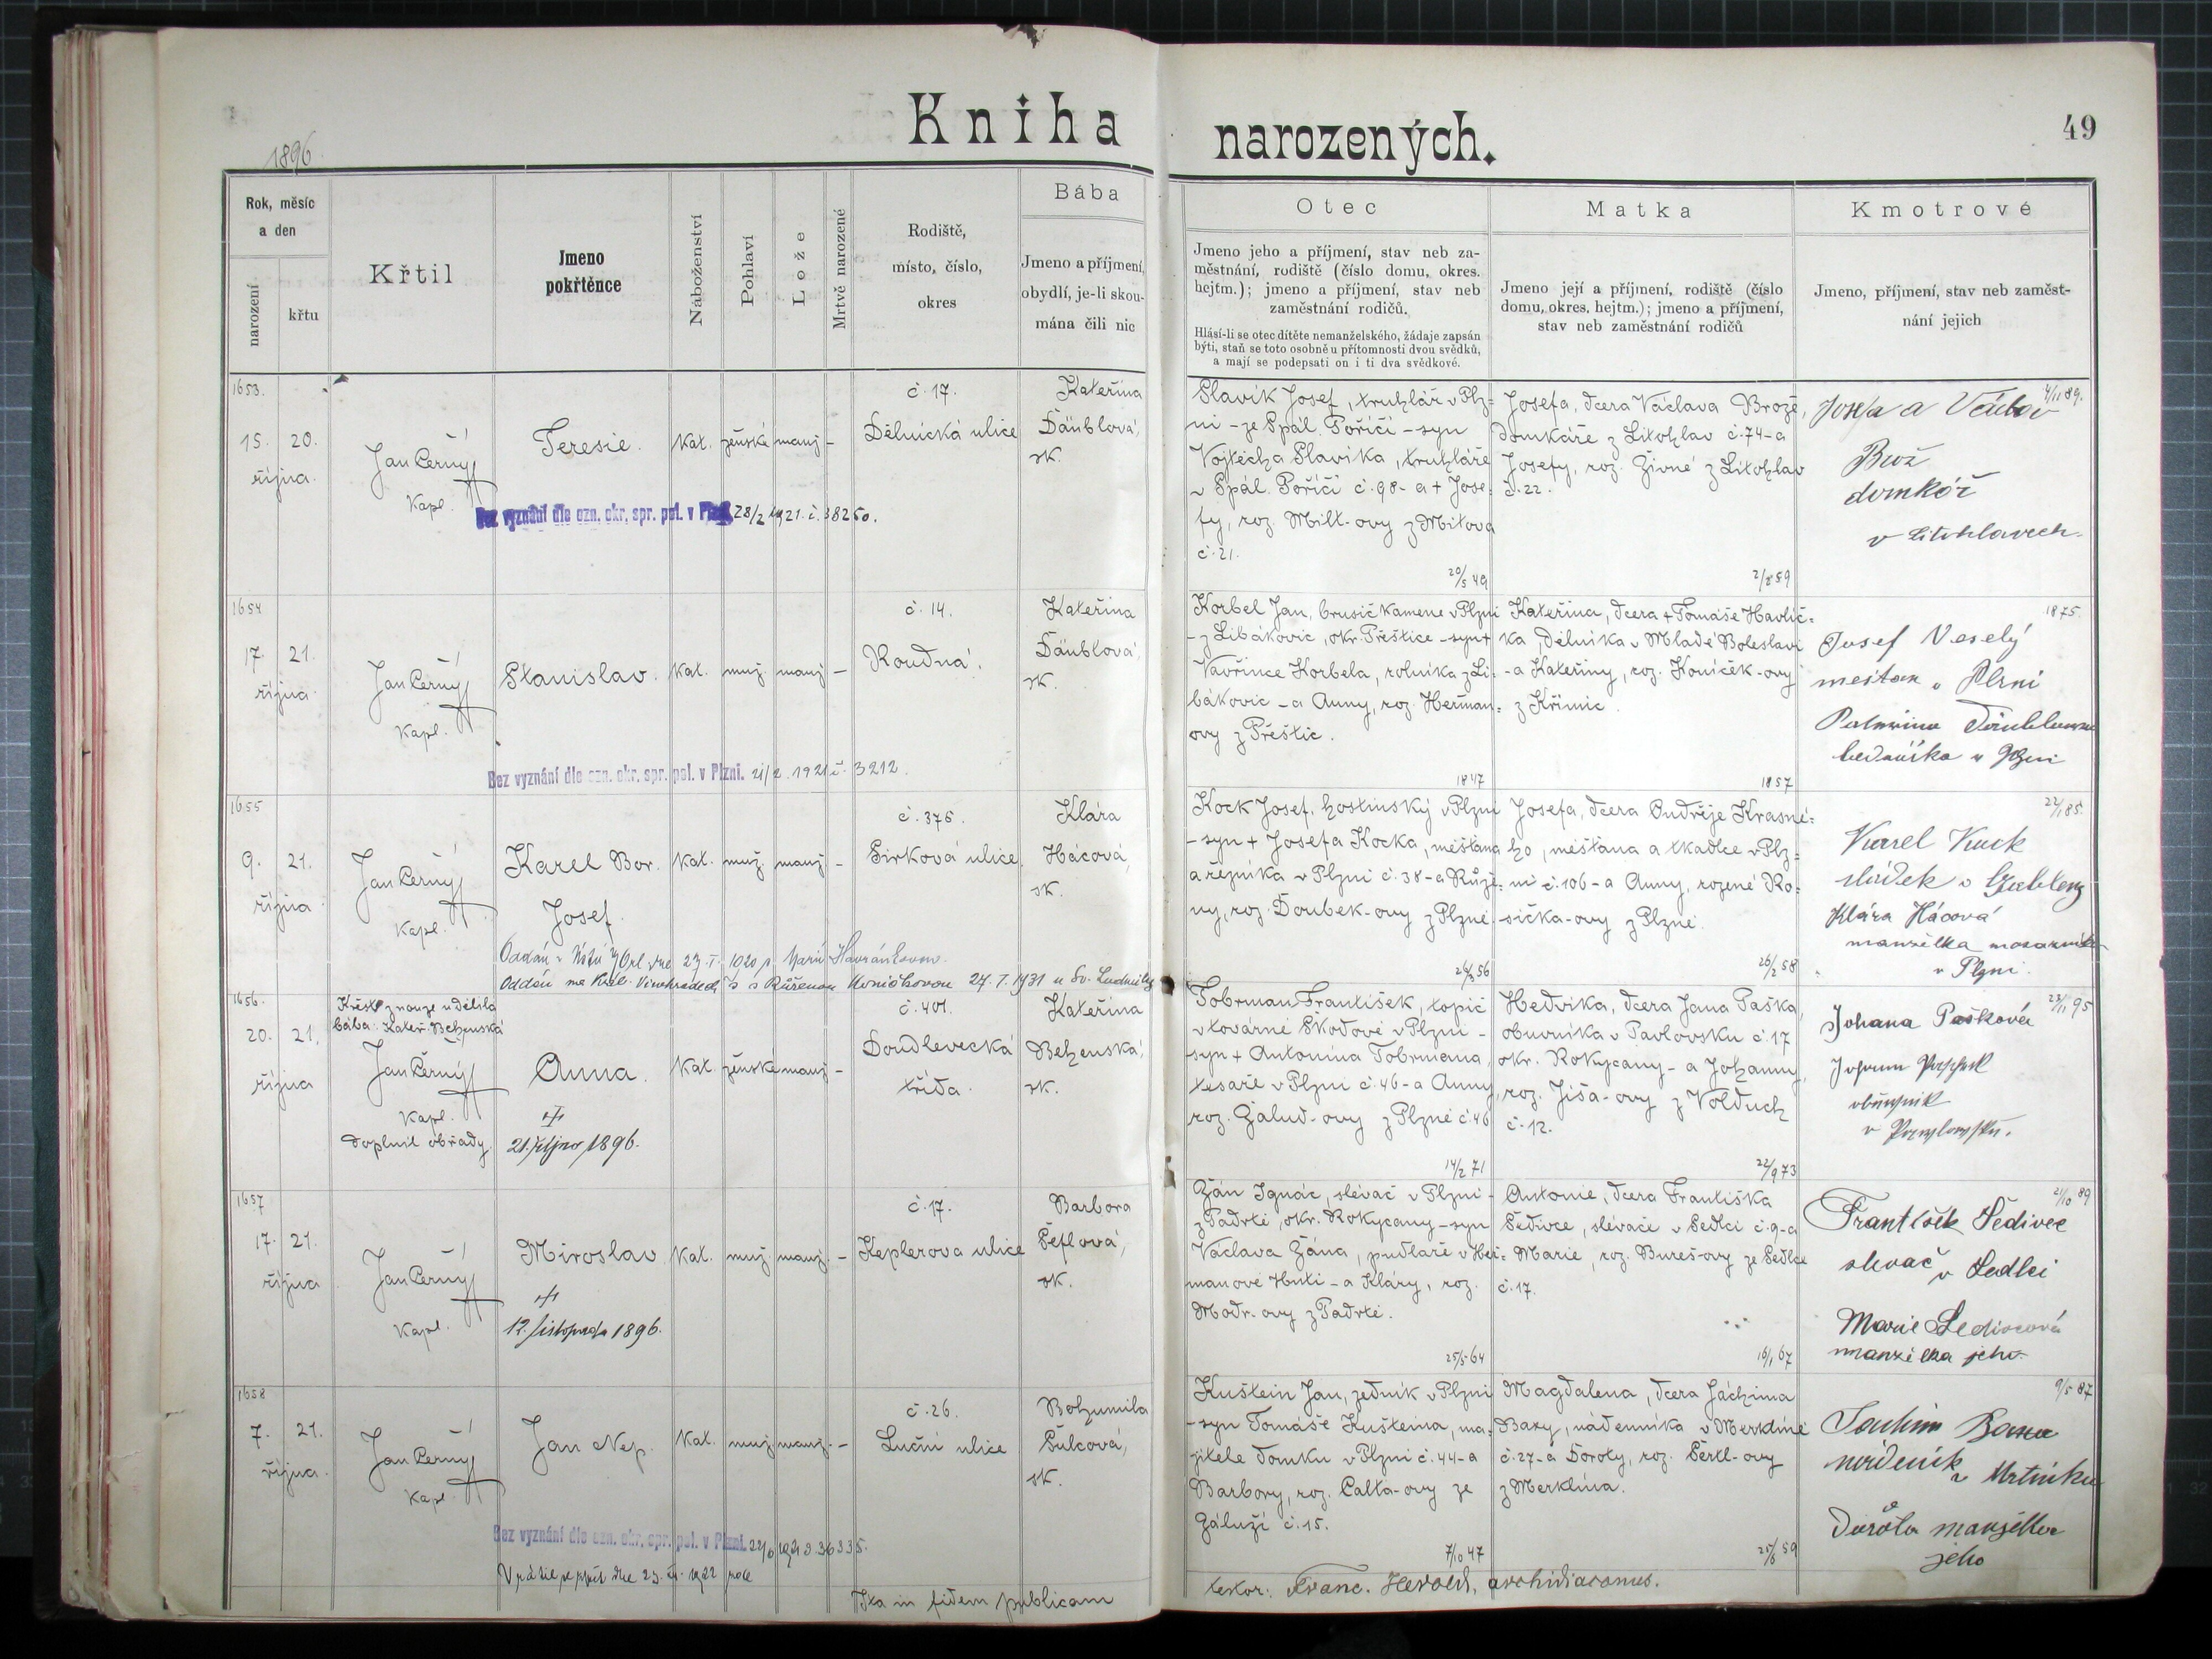 Kniha narozených.
49
1896.
Rok, měsíc
a den
narození
křtu
Křtil
Jmeno
pokřtěnce
Náboženství
Pohlaví
Lože
Mrtvě narozené
Rodiště,
místo, číslo,
okres
Bába
Jmeno a příjmení,
obydlí, je-li skou-
mána čili nic
Otec
Jmeno jeho a příjmení, stav neb za-
městnání, rodiště (číslo domu, okres.
hejtm.); jmeno a příjmení, stav neb
zaměstnání rodičů.
Hlásí-li se otec dítěte nemanželského, žádaje zapsán
býti, staň se toto osobně u přítomnosti dvou svědků,
a mají se podepsati on i ti dva svědkové.
Matka
Jmeno její a příjmení, rodiště (číslo
domu, okres. hejtm.); jmeno a příjmení,
stav neb zaměstnání rodičů
Kmotrové
Jmeno, příjmení, stav neb zaměst-
nání jejich
1653.
15. 20.
října.
Jan Černý
Kapl.
Teresie.
Kat. ženské manž. –
č. 17.
Dělnická ulice
Kateřina
Däublová,
zk.
Bez vyznání dle ozn. okr. spr. pol. v Plzni 28/2 1921. č. 38250.
Slavík Josef, truhlář v Plz=
ni – ze Spál. Poříčí – syn
Vojtěcha Slavíka, truhláře
v Spál. Poříčí č. 98 – a + Jose=
fy, roz. Milt-ovy z Mítova
č. 21.
20/5 49
Josefa, dcera Václava Brože,
domkáře z Litohlav č. 74 – a
Josefy, roz. Živné z Litohlav
č. 22.
2/8 59
4/11 89.
Josefa a Václav
Brož
domkář
v Litohlavech.
1654
17. 21.
října.
Jan Černý
Kapl.
Stanislav.
Kat. muž. manž. –
č. 14.
Roudná.
Kateřina
Däublová,
zk.
Bez vyznání dle ozn. okr. spr. pol. v Plzni. 21/2 1921 č. 3212.
Korbel Jan, brusič kamene v Plzni
– z Libákovic, okr. Přeštice – syn +
Vavřince Korbela, rolníka z Li=
bákovic – a Anny, roz. Heřman=
ovy z Přeštic.
1847
Kateřina, dcera + Tomáše Havlíč=
ka, dělníka v Mladé Boleslavi
– a Kateřiny, roz. Koníček-ovy
z Křimic.
1857
1875.
Josef Veselý
měšťan v Plzni
bednářka v Plzni
1655
9. 21.
října
Jan Černý
Kapl.
Karel Bor.
Josef.
Kat. muž. manž. –
č. 376.
Sirková ulice.
Klára
Hácová,
zk.
Oddán v Ústí 23. I. 1920 s Marií Havránkovou.
Oddán na Král. Vinohradech s Růženou 24. I. 1931 u Sv. Ludmily
Kock Josef, hostinský v Plzni
– syn + Josefa Kocka, měšťana
a řezníka v Plzni č. 38 – a Růže=
ny, roz. Doubek-ovy z Plzně.
26/3 56
Josefa, dcera Ondřeje Krasné=
ho, měšťana a tkadlce v Plz=
ni č. 106 – a Anny, rozené Ro=
sička-ovy z Plzně.
26/2 58
22/1 85.
Karel Kock
sládek v
Klára Hácová
manželka
v Plzni.
1656.
20. 21.
října
Křest z nouze udělila
bába: Kateř. Behenská
Jan Černý
Kapl.
doplnil obřady.
Anna.
21. října 1896.
Kat. ženské manž. –
č. 401.
Doudlevecká
třída.
Kateřina
Behenská,
zk.
Tobrman František, topič
v továrně Škodově v Plzni –
syn + Antonína Tobrmana,
tesaře v Plzni č. 46 – a Anny,
roz. Žalud-ovy z Plzně č. 46
14/2 71
Hedvika, dcera Jana Paška,
obuvníka v Pavlovsku č. 17
okr. Rokycany – a Johanny,
roz. Jíša-ovy z Volduch
č. 12.
22/9 73
23/11 95
Johana Pašková
1657
17. 21.
října
Jan Černý
Kapl.
Miroslav
12. listopada 1896.
Kat. muž. manž. –
č. 17.
Keplerova ulice
Barbora
Šeflová,
zk.
Žán Ignác, slévač v Plzni –
z Padrtě, okr. Rokycany – syn
Václava Žána, pudlaře v Heř=
manově Huti – a Kláry, roz.
Modr-ovy z Padrtě.
25/5 64
Antonie, dcera Františka
Šedivce, slévače v Sedlci č. 9 – a
Marie, roz. Bureš-ovy ze Sedlce
č. 17.
16/1 67
21/10 89
František Šedivec
slevač v Sedlci
Marie Šedivcová
manželka jeho.
1658
7. 21.
října.
Jan Černý
Kapl.
Jan Nep.
Kat. muž. manž. –
č. 26.
Luční ulice
Bohumila
Šulcová,
zk.
Bez vyznání dle ozn. okr. spr. pol. v Plzni.
Kuštein Jan, zedník v Plzni
– syn Tomáše Kušteina, ma=
jitele domku v Plzni č. 44 – a
Barbory, roz. Calta-ovy ze
Záluží č. 15.
7/10 47
Magdalena, dcera Jáchima
Baxy, nádenníka v Merklíně
č. 27 – a Doroty, roz. Šertl-ovy
z Merklína.
25/6 59
9/5 87
nádeník
manželka
jeho
Ita in fidem publicam
testor: Franc. Herold, archidiaconus.